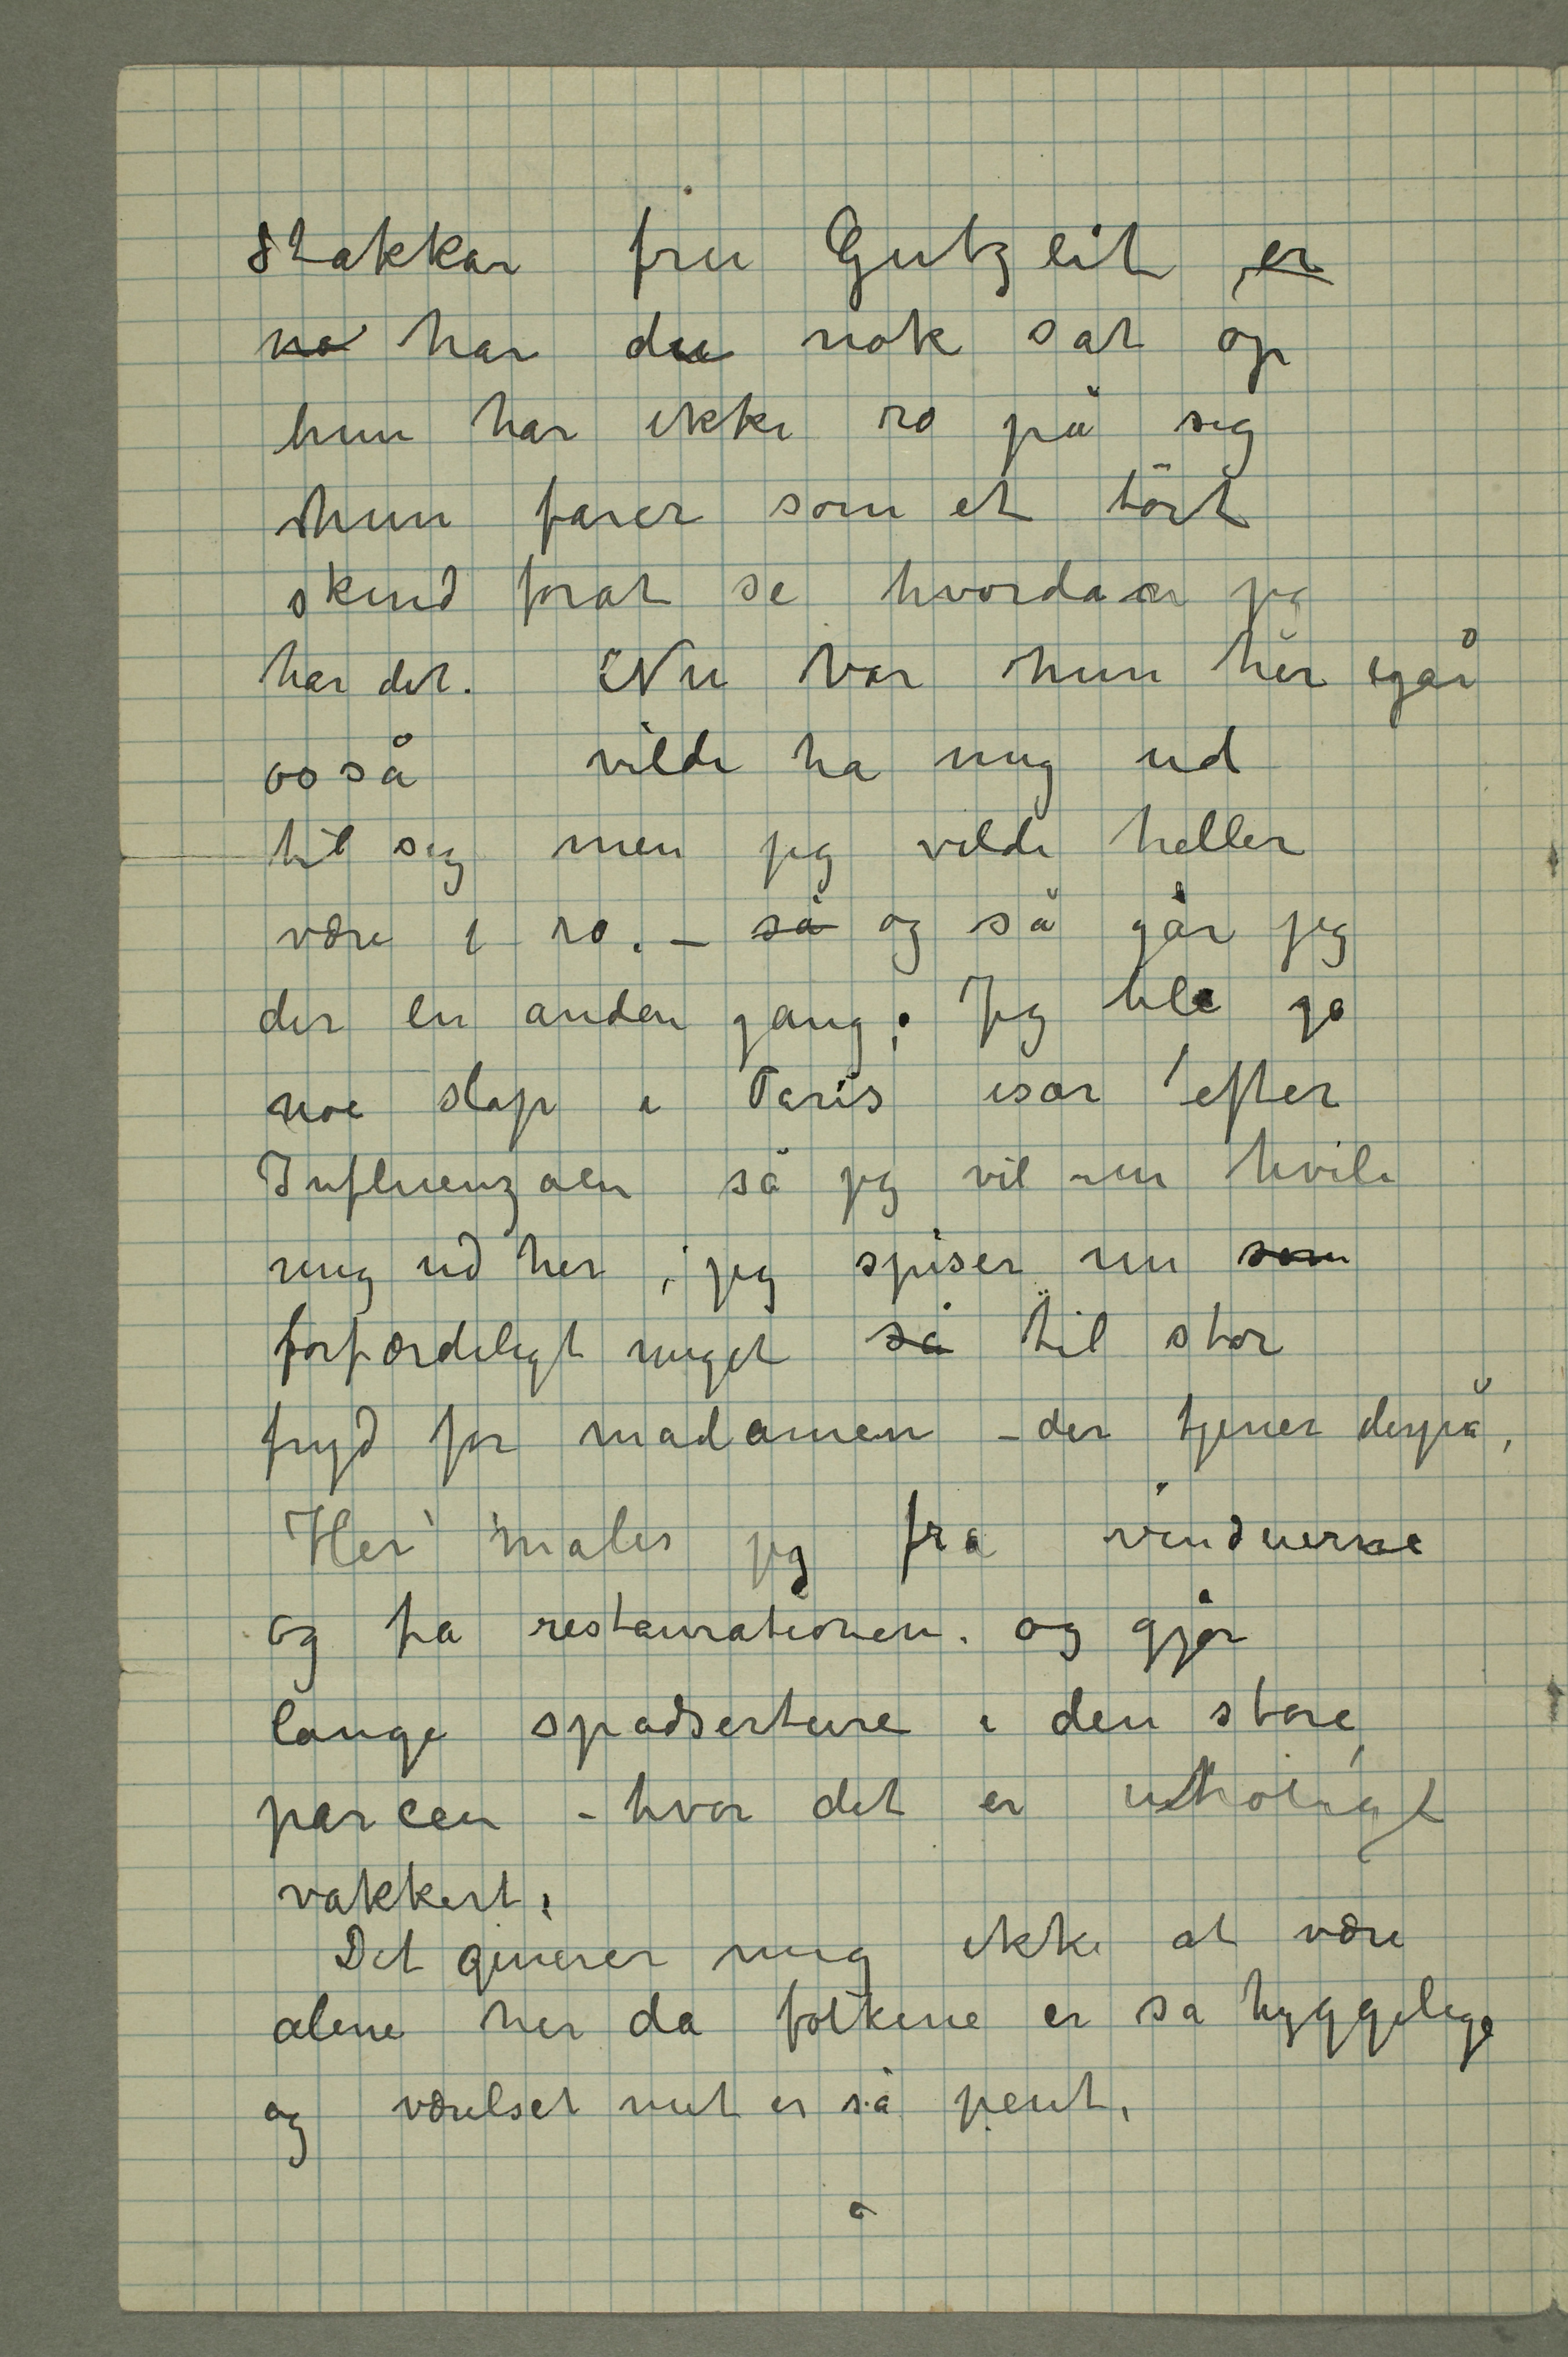 Stakkar fru Gutzeit er
no har du nok sat op
hun har ikke ro på sig
hun farer som et tört
skind forat se hvordan jeg
har det. Nu var hun her igår
også vilde ha mig ud
til sig men jeg vilde heller
være i ro. – så og så går jeg
der en anden gang; Jeg ble ja
noe slap i Paris især efter
Influenzaen så jeg vil nu hvile
mig ud her, jeg spiser nu som
forfærdeligt meget så til stor
fryd for madamen – der tjener derpå,
Her maler jeg fra vinduerne
og fra restaurationen. og gjør
lange spadserture i den store
parcen – hvor det er utroligt
vakkert.
Det generer mig ikke at være
alene her da folkene er så hyggelige
og værelset mit er så pent.